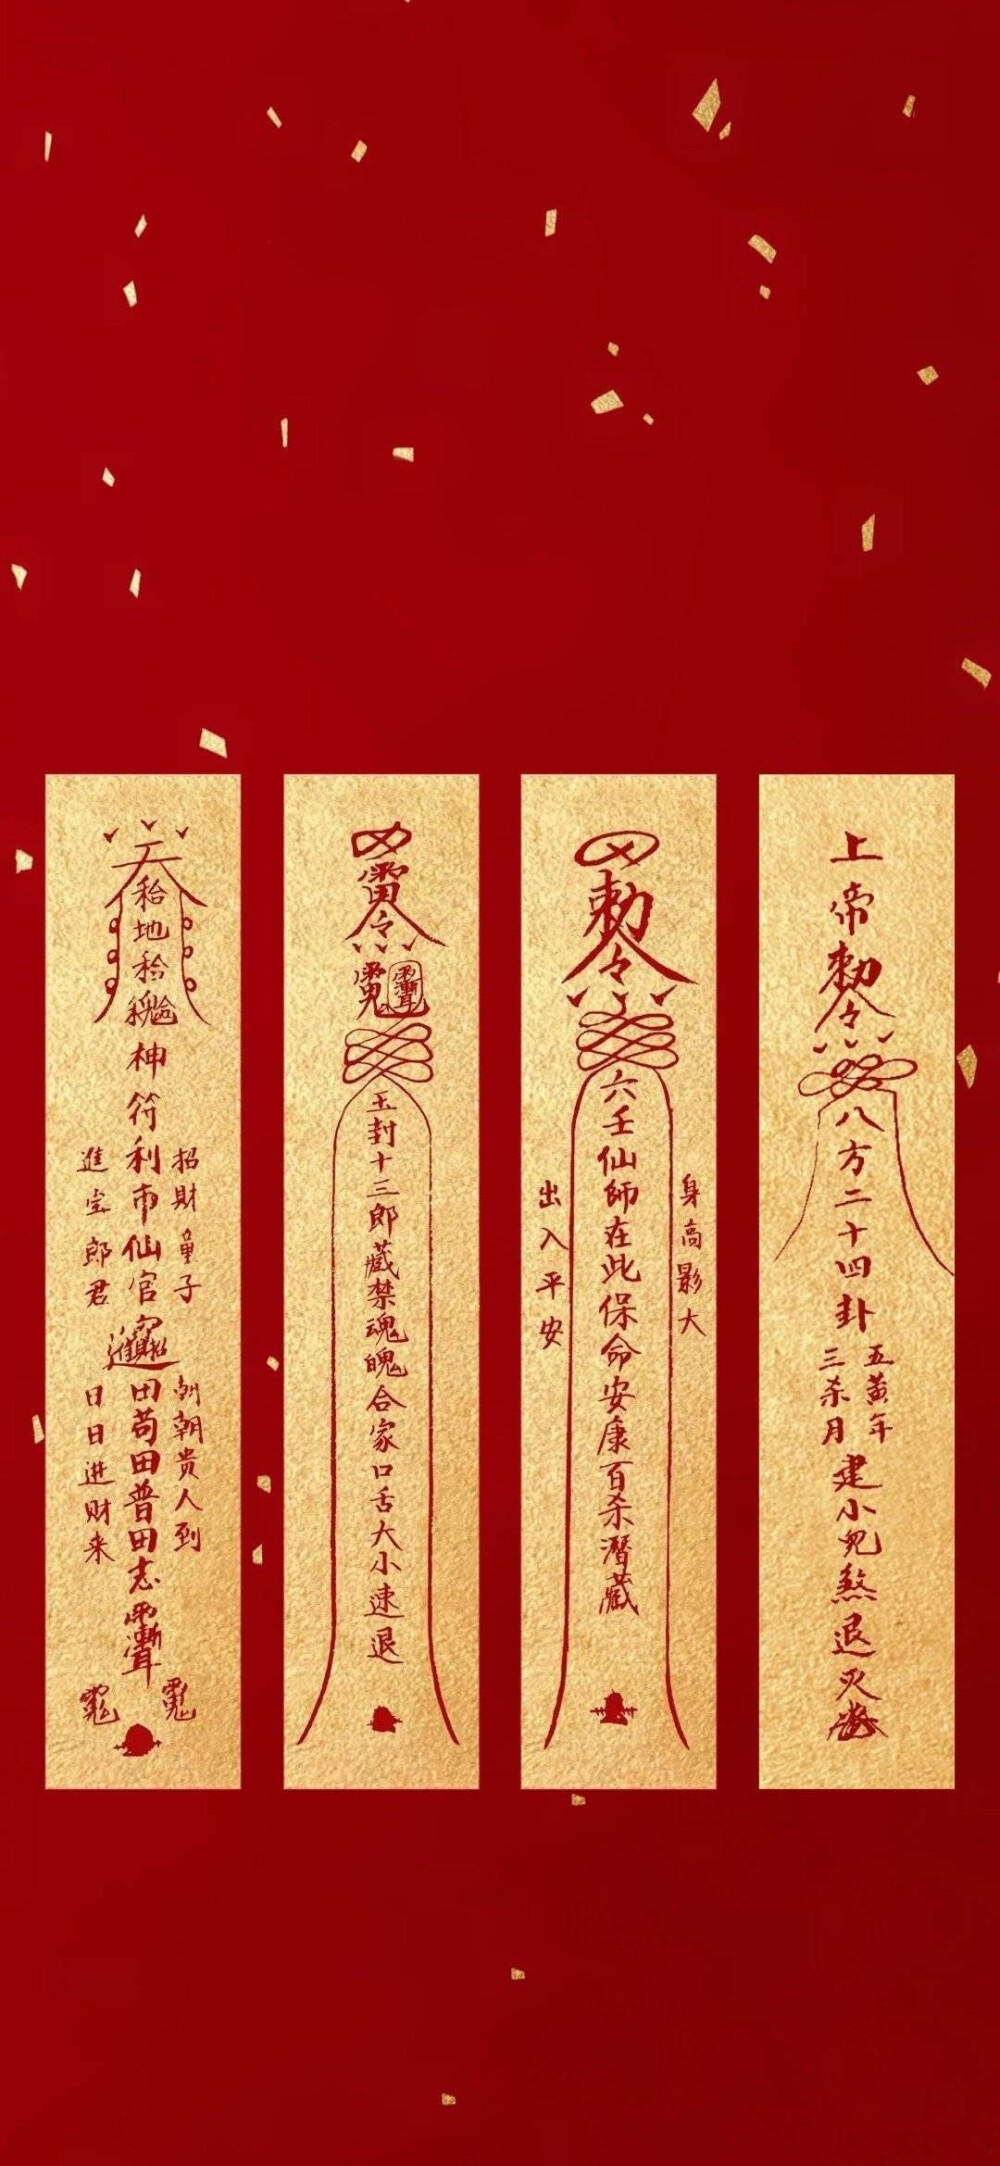 上帝勅令
八方二十四卦
五黄年
三杀月
建小儿煞退灭
勅令
六壬仙師在此保命安康百杀潛藏
身高影大
出入平安
玉封十三郎藏禁魂魄合家口舌大小速退
神符利市仙官
招財童子
進宝郎君
田苟田普田志
朝朝贵人到
日日进财来